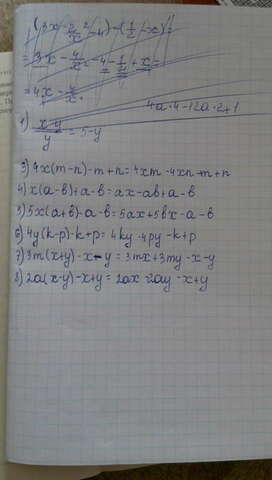 (3x - 2/x² - 4) - (1/2 - x) =
= 3x - 4/x² - 4 - 1/4 + x =
= 4x - 4/x.
4a·4-12a·2+1
1) x y / y = 5 - y
3) 4x(m-n)-m+n=4xm-4xn-m+n
4) x(a-в)+a-в=ax-aв+a-в
5) 5x(a+в)-a-в=5ax+5вx-a-в
6) 4y(k-p)-k+p=4ky-4py-k+p
7) 3m(x+y)-x-y=3mx+3my-x-y
8) 2a(x-y)-x+y=2ax-2ay-x+y